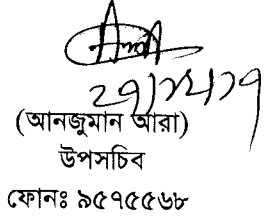 (আনজুমান আরা)
উপসচিব
ফোনঃ ৯৫৭৫৫৬৮